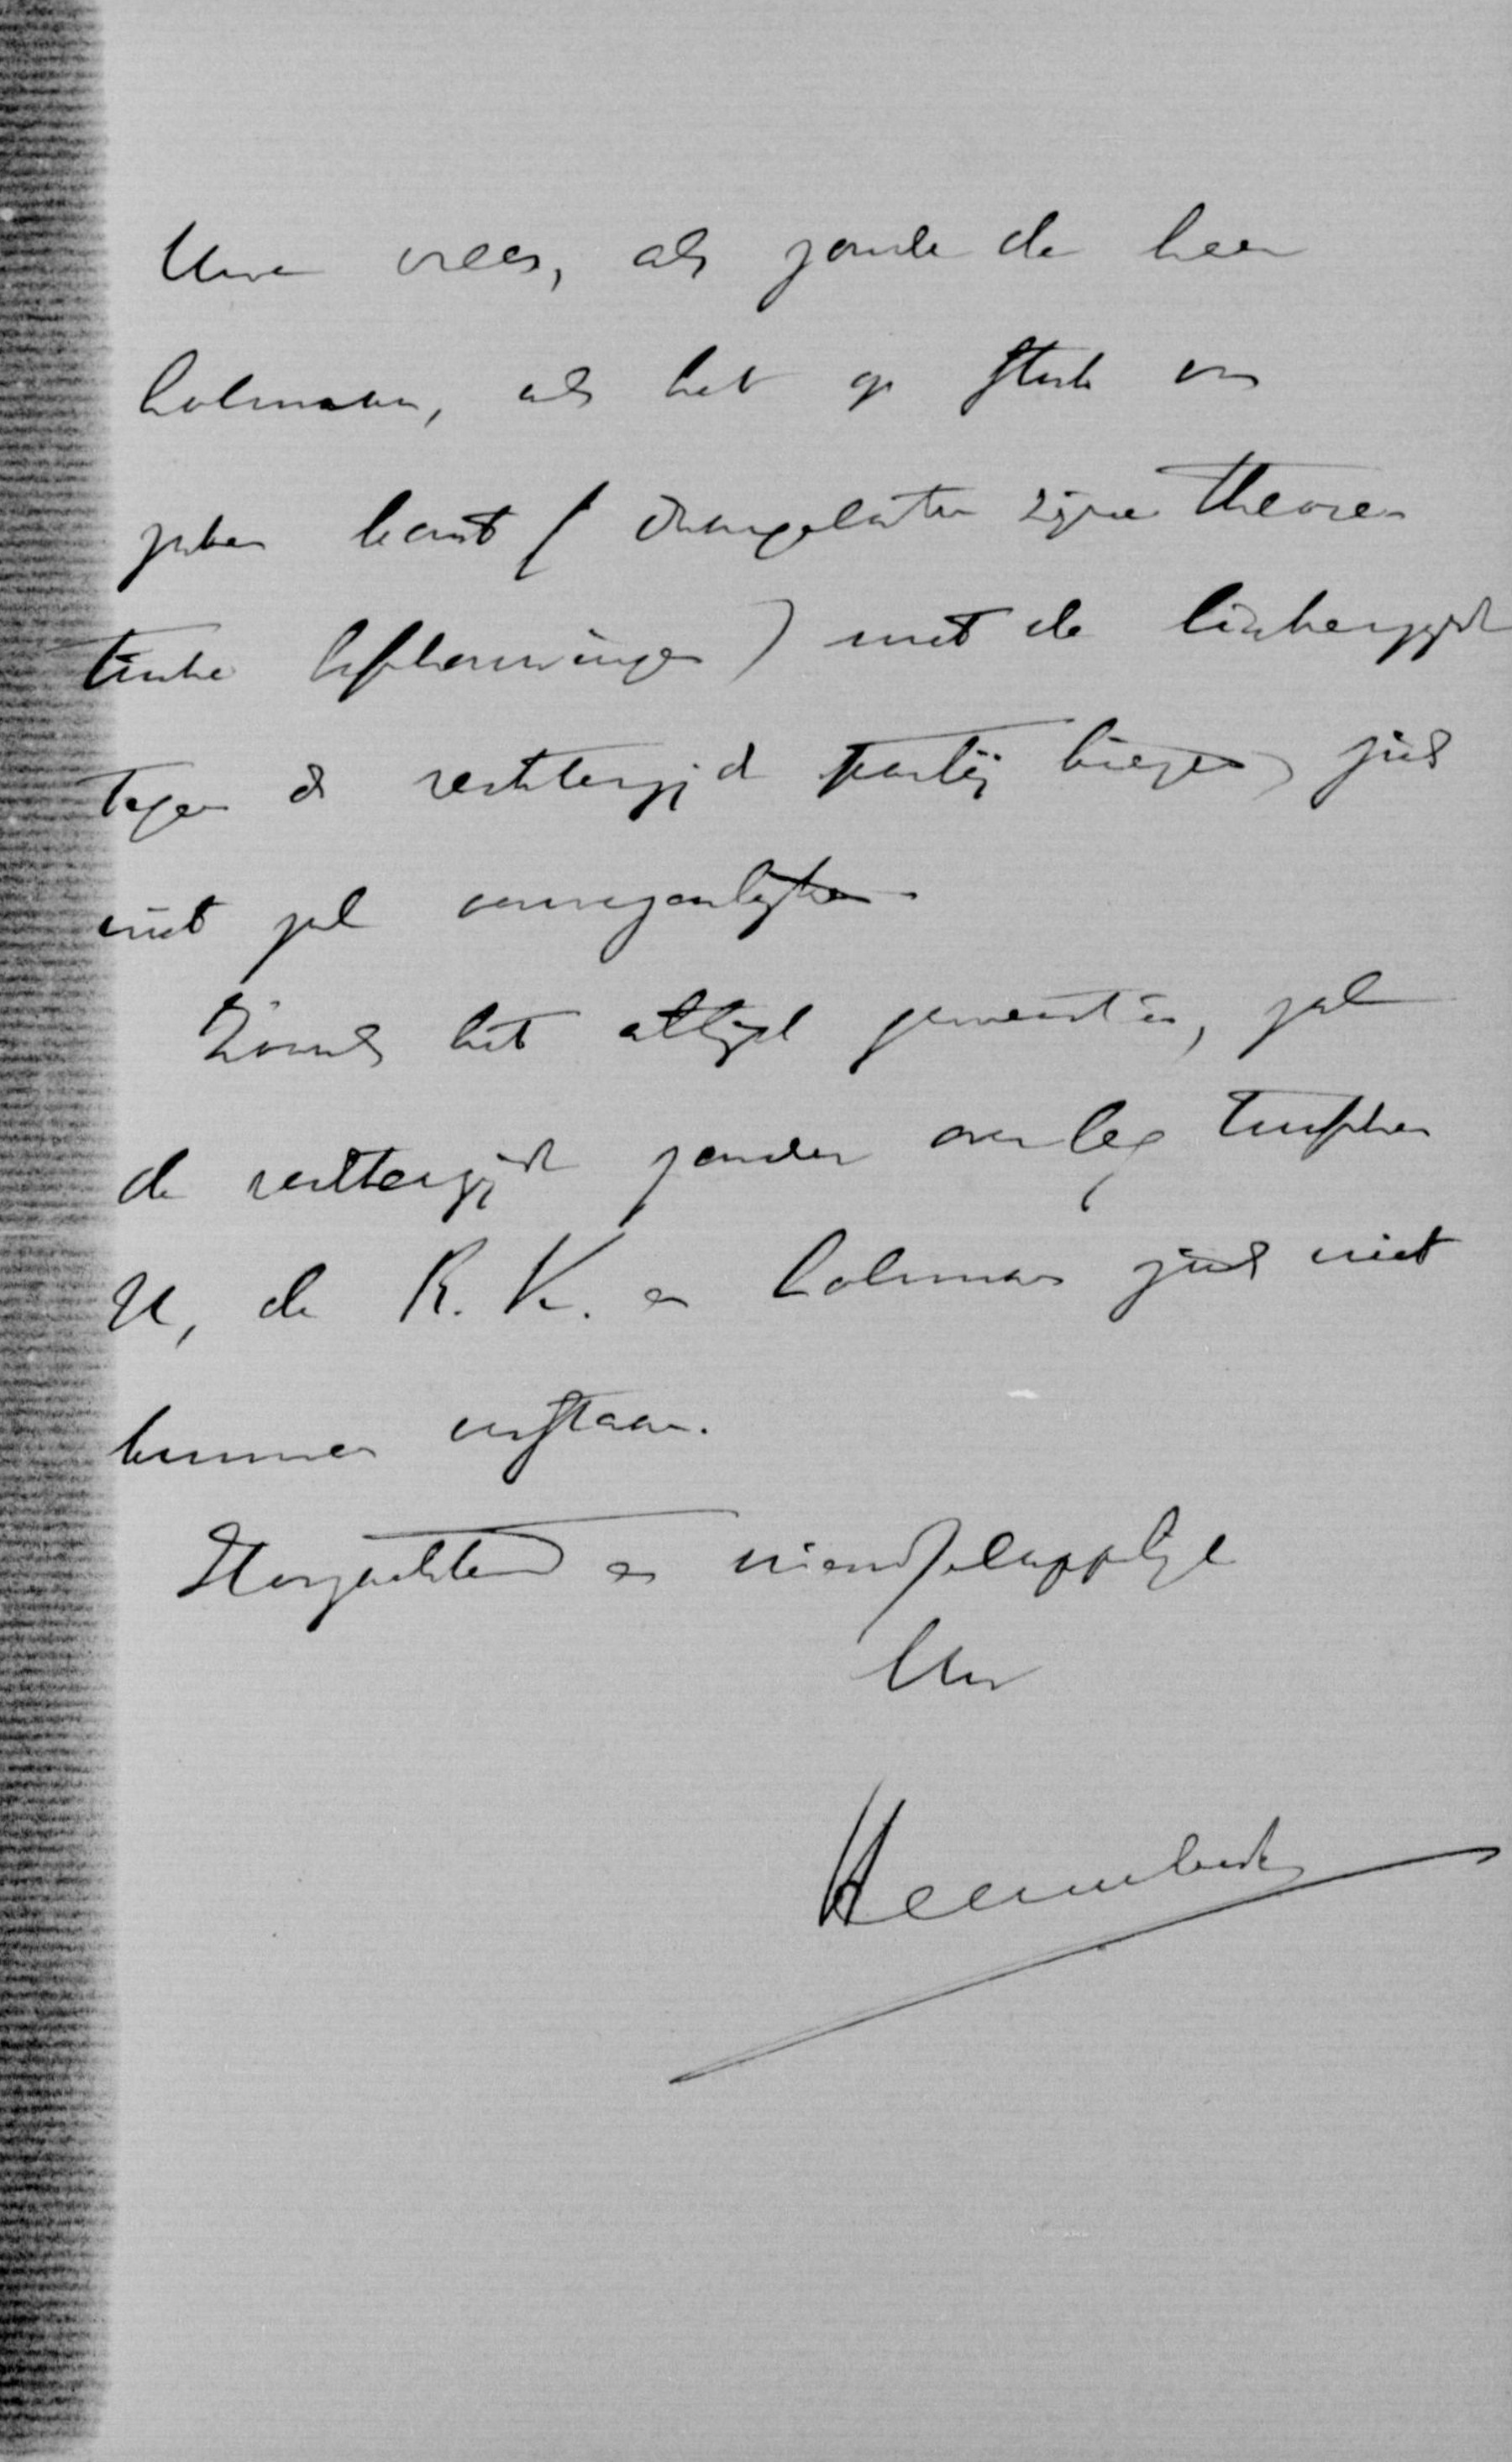 Uwe vrees, als zoude de heer
Lohman, als het op stuk van
zaken komt (daargelaten zijne theore-
tische beschouwingen) met de linkerzijde
tegen de rechterzijde partij kiezen, zich
niet zal verwezenlijken.
Zooals het altijd geweest is, zal
de rechterzijde zonder overleg tusschen
U, de R. K. en Lohman zich niet
kunnen verstaan.
Hoogachtend en vriendschappelijk
Uw
Heemskerk